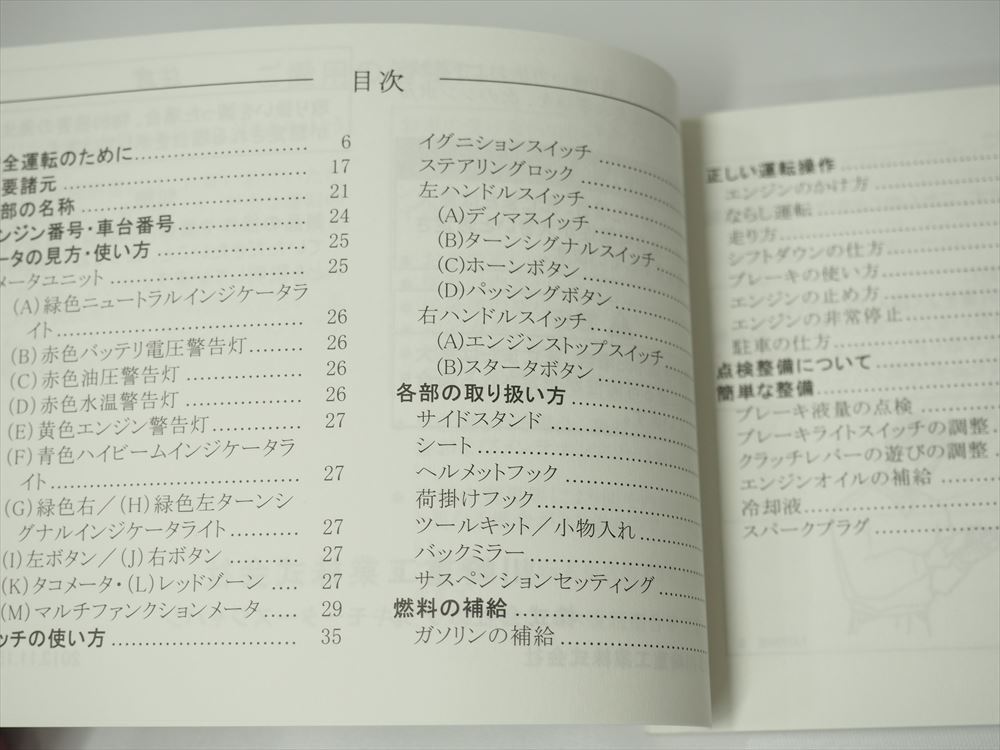 目次
全運転のために 6
要諸元 17
部の名称 21
ンジン番号・車台番号 24
ータの見方・使い方 25
メータユニット 25
(A)緑色ニュートラルインジケータラ
イト 26
(B)赤色バッテリ電圧警告灯 26
(C)赤色油圧警告灯 26
(D)赤色水温警告灯 26
(E)黄色エンジン警告灯 27
(F)青色ハイビームインジケータラ
イト 27
(G)緑色右／(H)緑色左ターンシ
グナルインジケータライト 27
(I)左ボタン／(J)右ボタン 27
(K)タコメータ・(L)レッドゾーン 27
(M)マルチファンクションメータ 29
ッチの使い方 35
イグニションスイッチ
ステアリングロック
左ハンドルスイッチ
(A)ディマスイッチ
(B)ターンシグナルスイッチ
(C)ホーンボタン
(D)パッシングボタン
右ハンドルスイッチ
(A)エンジンストップスイッチ
(B)スタータボタン
各部の取り扱い方
サイドスタンド
シート
ヘルメットフック
荷掛けフック
ツールキット／小物入れ
バックミラー
サスペンションセッティング
燃料の補給
ガソリンの補給
正しい運転操作
エンジンのかけ方
ならし運転
走り方
シフトダウンの仕方
ブレーキの使い方
エンジンの止め方
エンジンの非常停止
駐車の仕方
点検整備について
簡単な整備
ブレーキ液量の点検
ブレーキライトスイッチの調整
クラッチレバーの遊びの調整
エンジンオイルの補給
冷却液
スパークプラグ